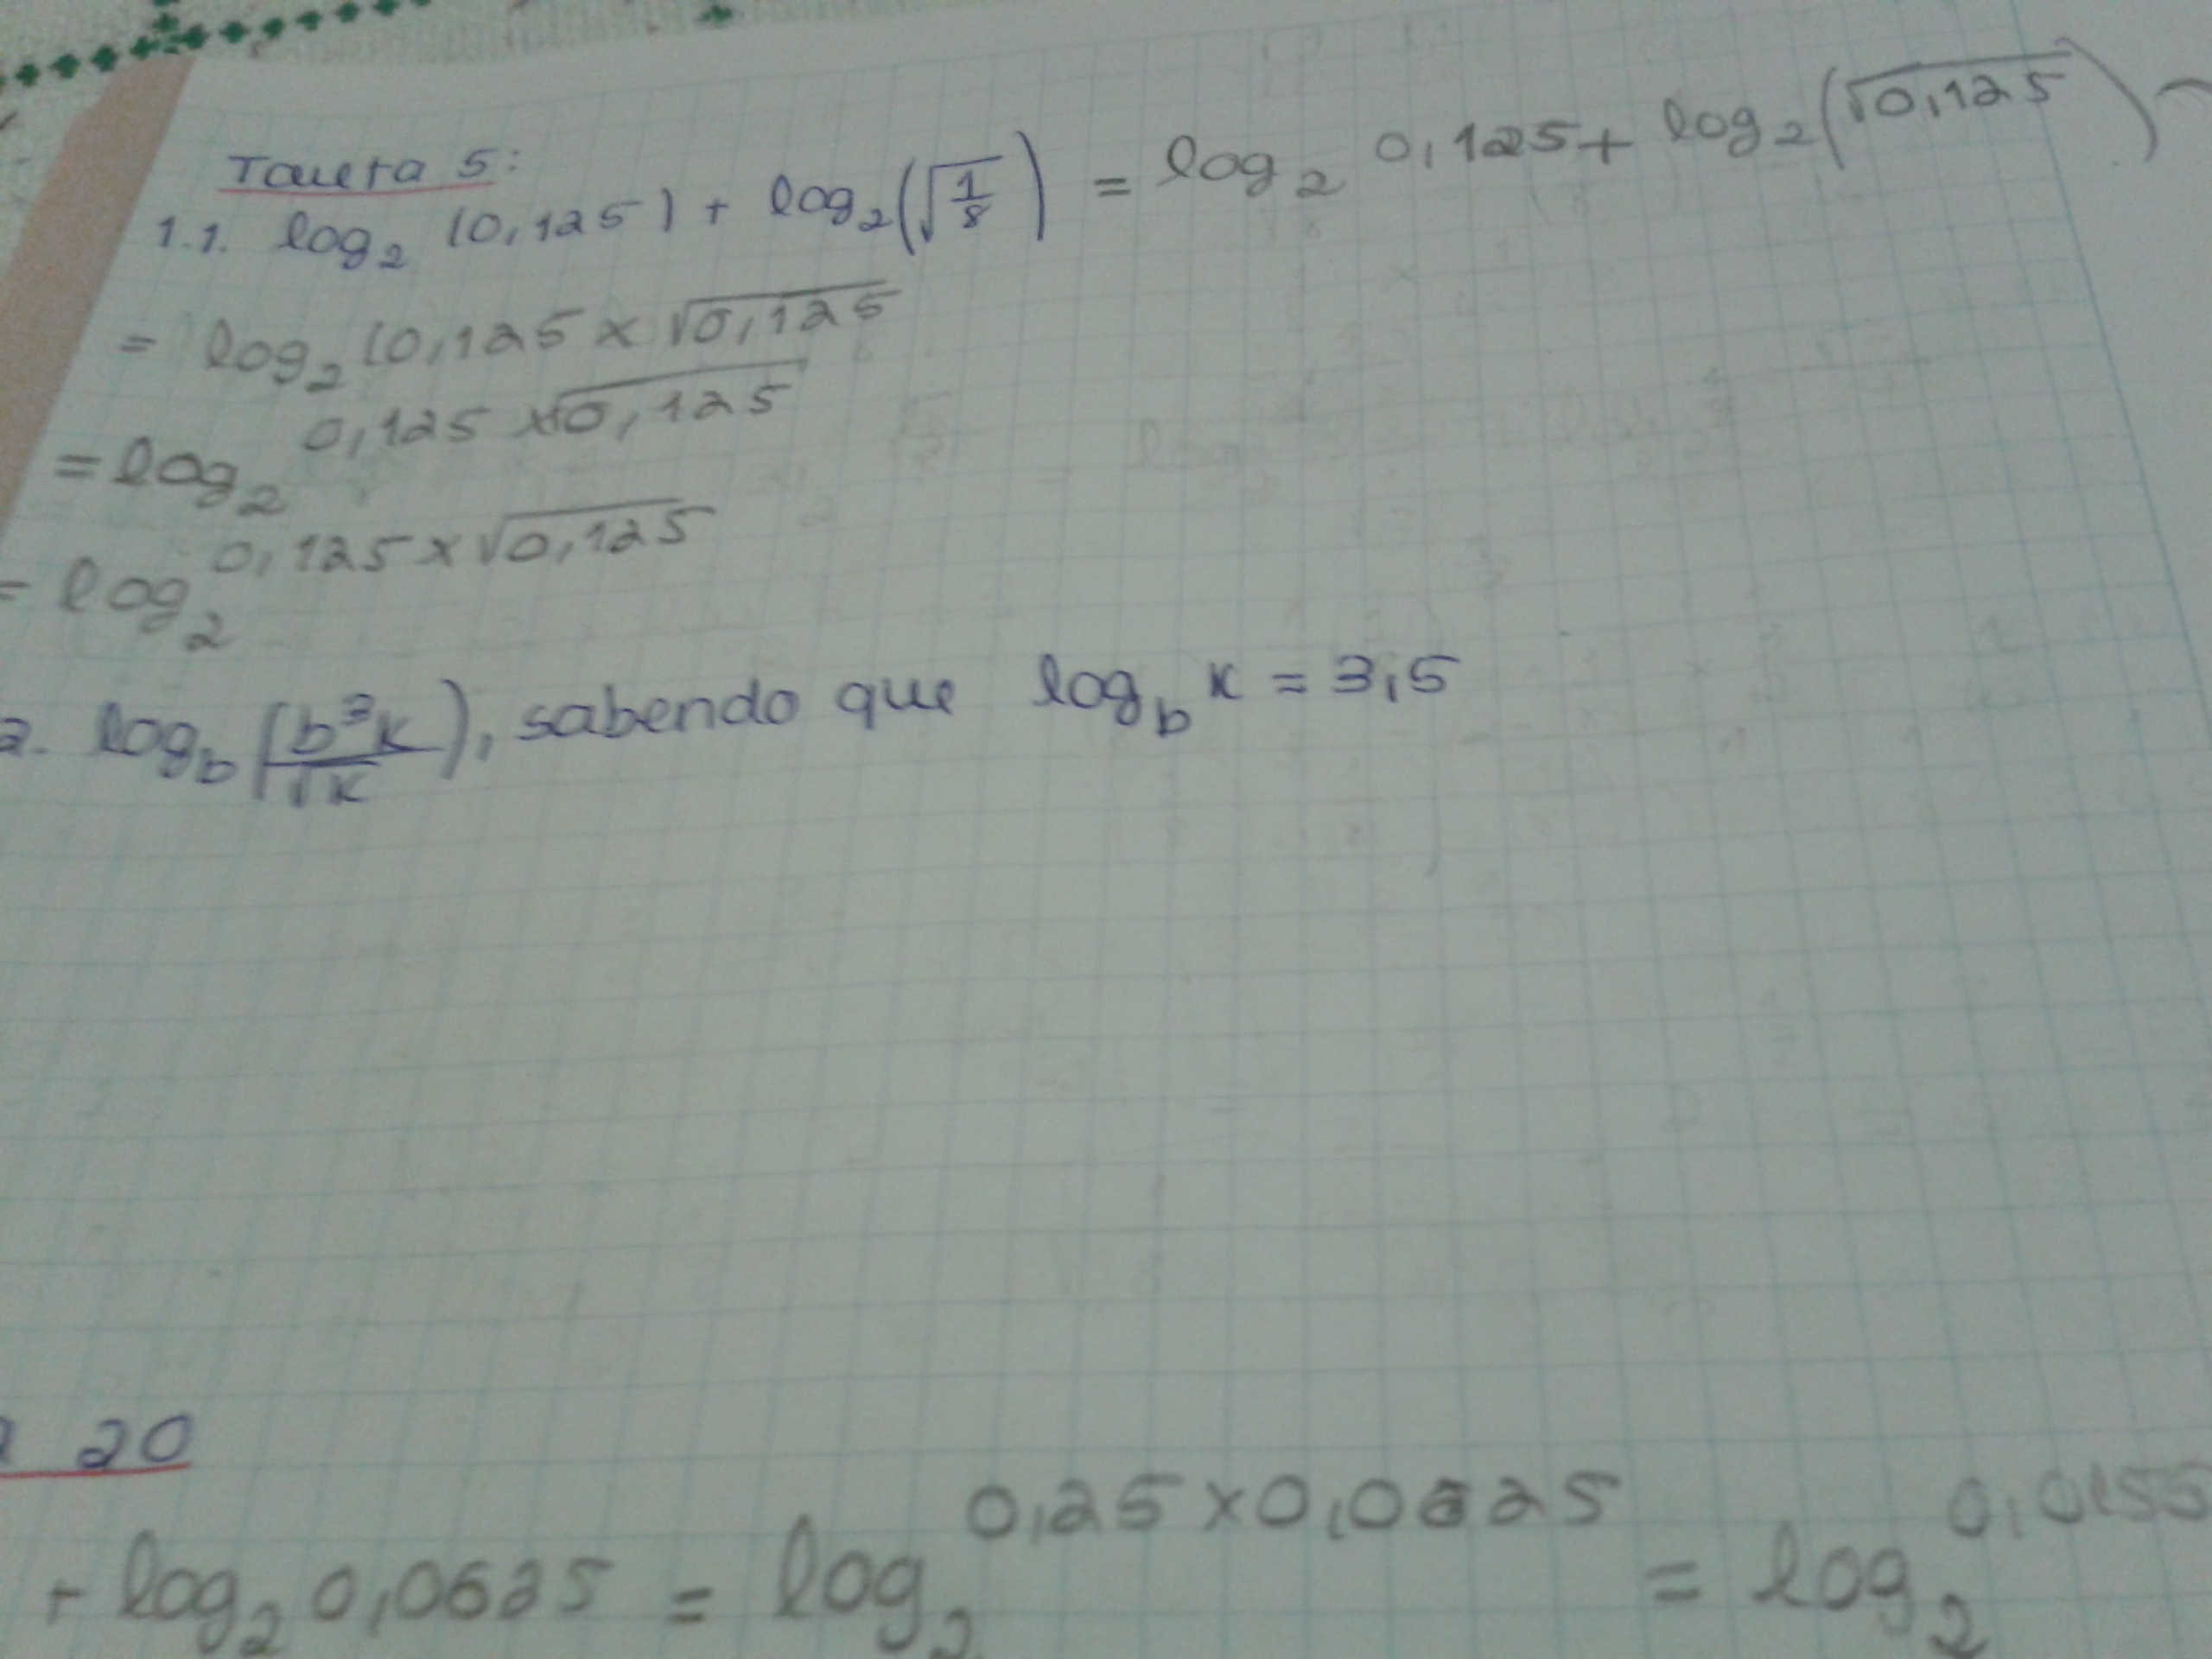 Tarefa 5:
1.1. log₂ (0,125) + log₂(√(1/8)) = log₂ 0,125 + log₂(√0,125)
= log₂ (0,125 × √0,125
= log₂ 0,125 × √0,125
= log₂ 0,125 × √0,125
2. log_b (b³k/√k), sabendo que log_b k = 3,5
20
+ log₂ 0,0625 = log₂ 0,25 × 0,0625 = log₂